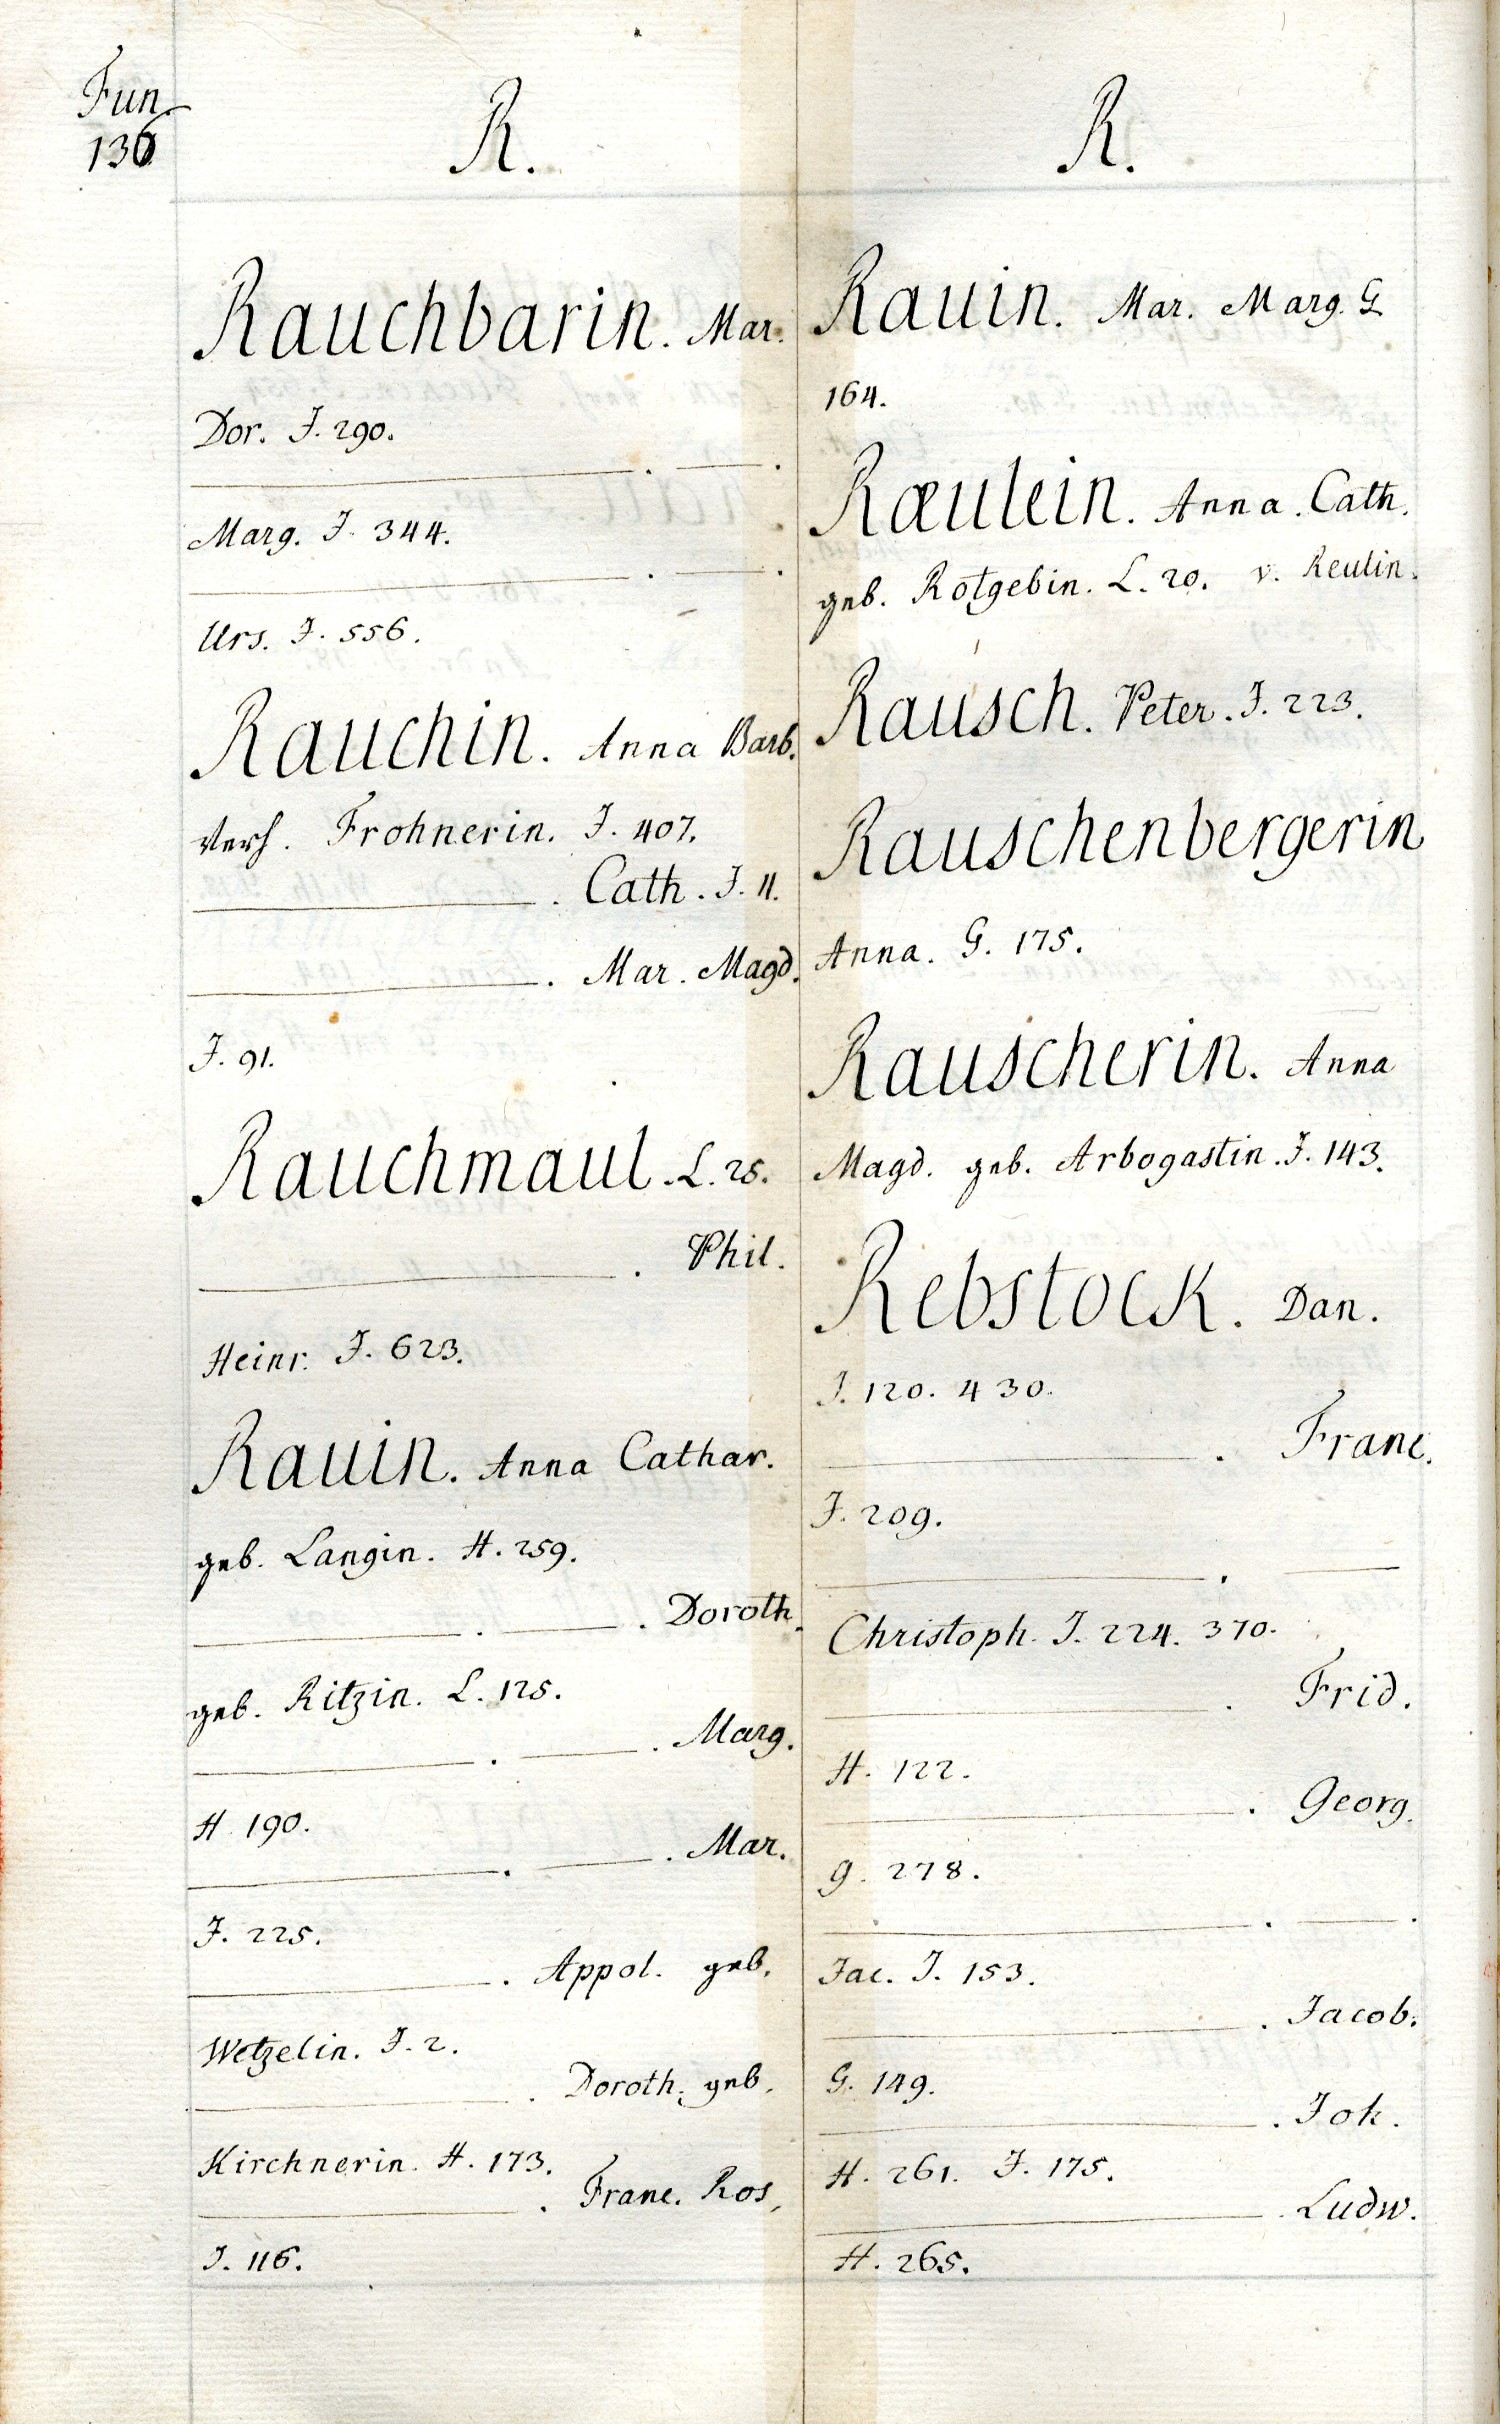 Fun.
136
R.
Rauchbarin. Mar.
Dor. J. 290.
Marg. J. 344.
Urs. J. 556.
Rauchin. Anna Barb.
verh. Frohnerin. J. 407.
Cath. J. 11.
Mar. Magd.
J. 91.
Rauchmaul. L. 25.
Phil.
Heinr. J. 623.
Rauin. Anna Cathar.
geb. Langin. H. 259.
Doroth.
geb. Ritzin. L. 125.
Marg.
H. 190.
Mar.
J. 225.
Appol. geb.
Wetzelin. J. 2.
Doroth. geb.
Kirchnerin. H. 173.
Franc. Ros.
J. 116.
R.
Rauin. Mar. Marg. G
164.
Ræulein. Anna. Cath.
geb. Rotgebin. L. 20. v. Reulin.
Rausch. Peter. J. 223.
Rauschenbergerin
Anna. G. 175.
Rauscherin. Anna
Magd. geb. Arbogastin. J. 143.
Rebstock. Dan.
J. 120. 430.
Franc.
J. 209.
Christoph. J. 224. 370.
Frid.
H. 122.
Georg.
G. 278.
Jac. J. 153.
Jacob.
G. 149.
Joh.
H. 261. J. 175.
Ludw.
H. 265.